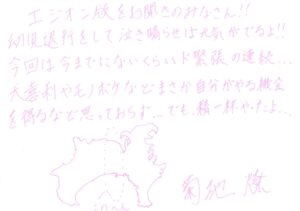 エジオン版をお聞きのみなさん!!
幼児退行をして泣き晴らせば元気がでるよ!!
今回は今までにないくらいド緊張の連続…
大喜利やモノボケなどまさか自分がやる機会
を得るなど思っておらず…でも、精一杯やったよ…
このへん
菊池 燎